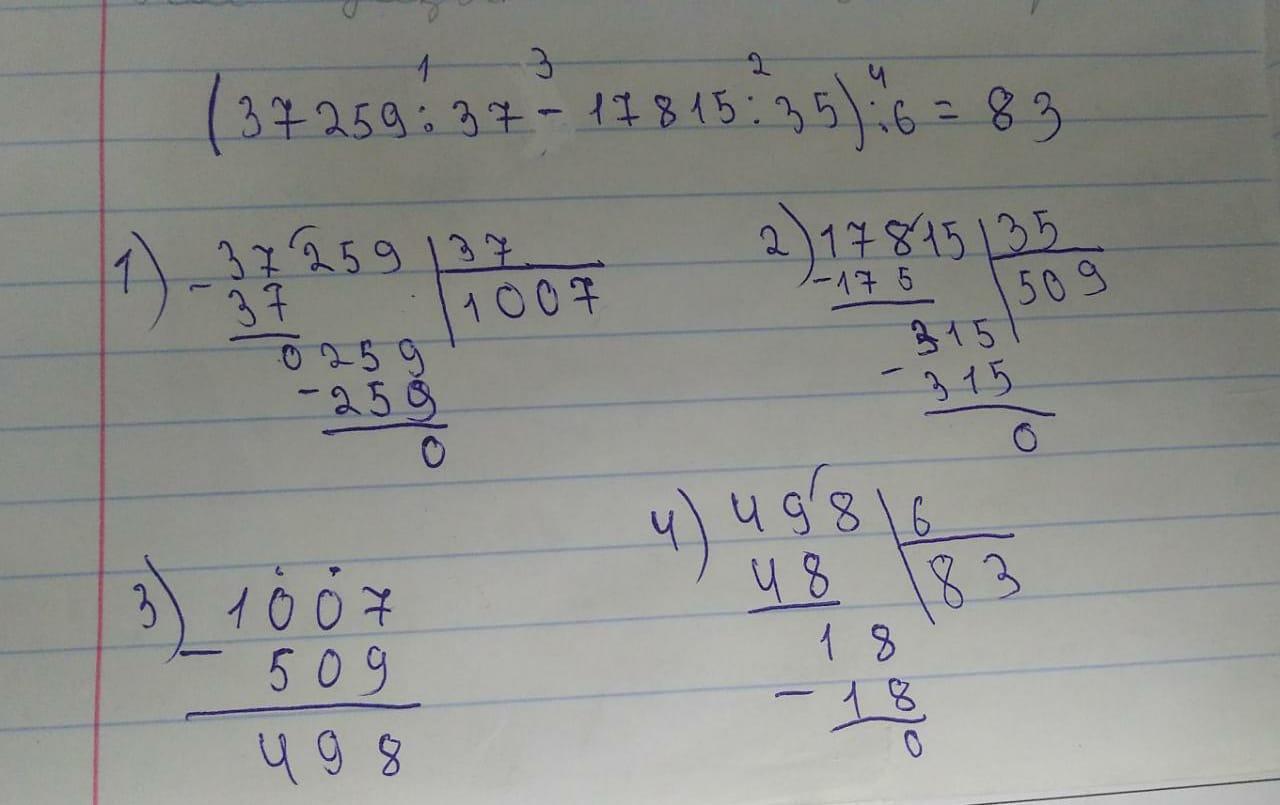 1 3 2 4
(37259:37-17815:35):6=83
1) 37259 | 37
-37 1007
0259
-259
0
2) 17815 | 35
-175 509
315
-315
0
3) 1007
- 509
498
4) 498 | 6
48 83
18
-18
0